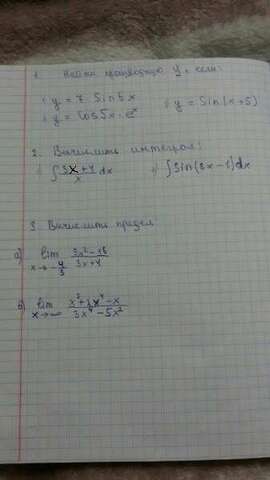 1. Найти производную y', если:
1) y = 7 Sin5x 3) y = Sin(x+5)
2) y = Cos5x · eˣ
2. Вычислить интеграл:
1) ∫ (5x+4)/x dx 2) ∫Sin(8x-1)dx
3. Вычислить предел
а) lim x→-4/3 (3x²-16)/(3x+4)
б) lim x→∞ (x³+2x⁴-x)/(3x⁴-5x²)